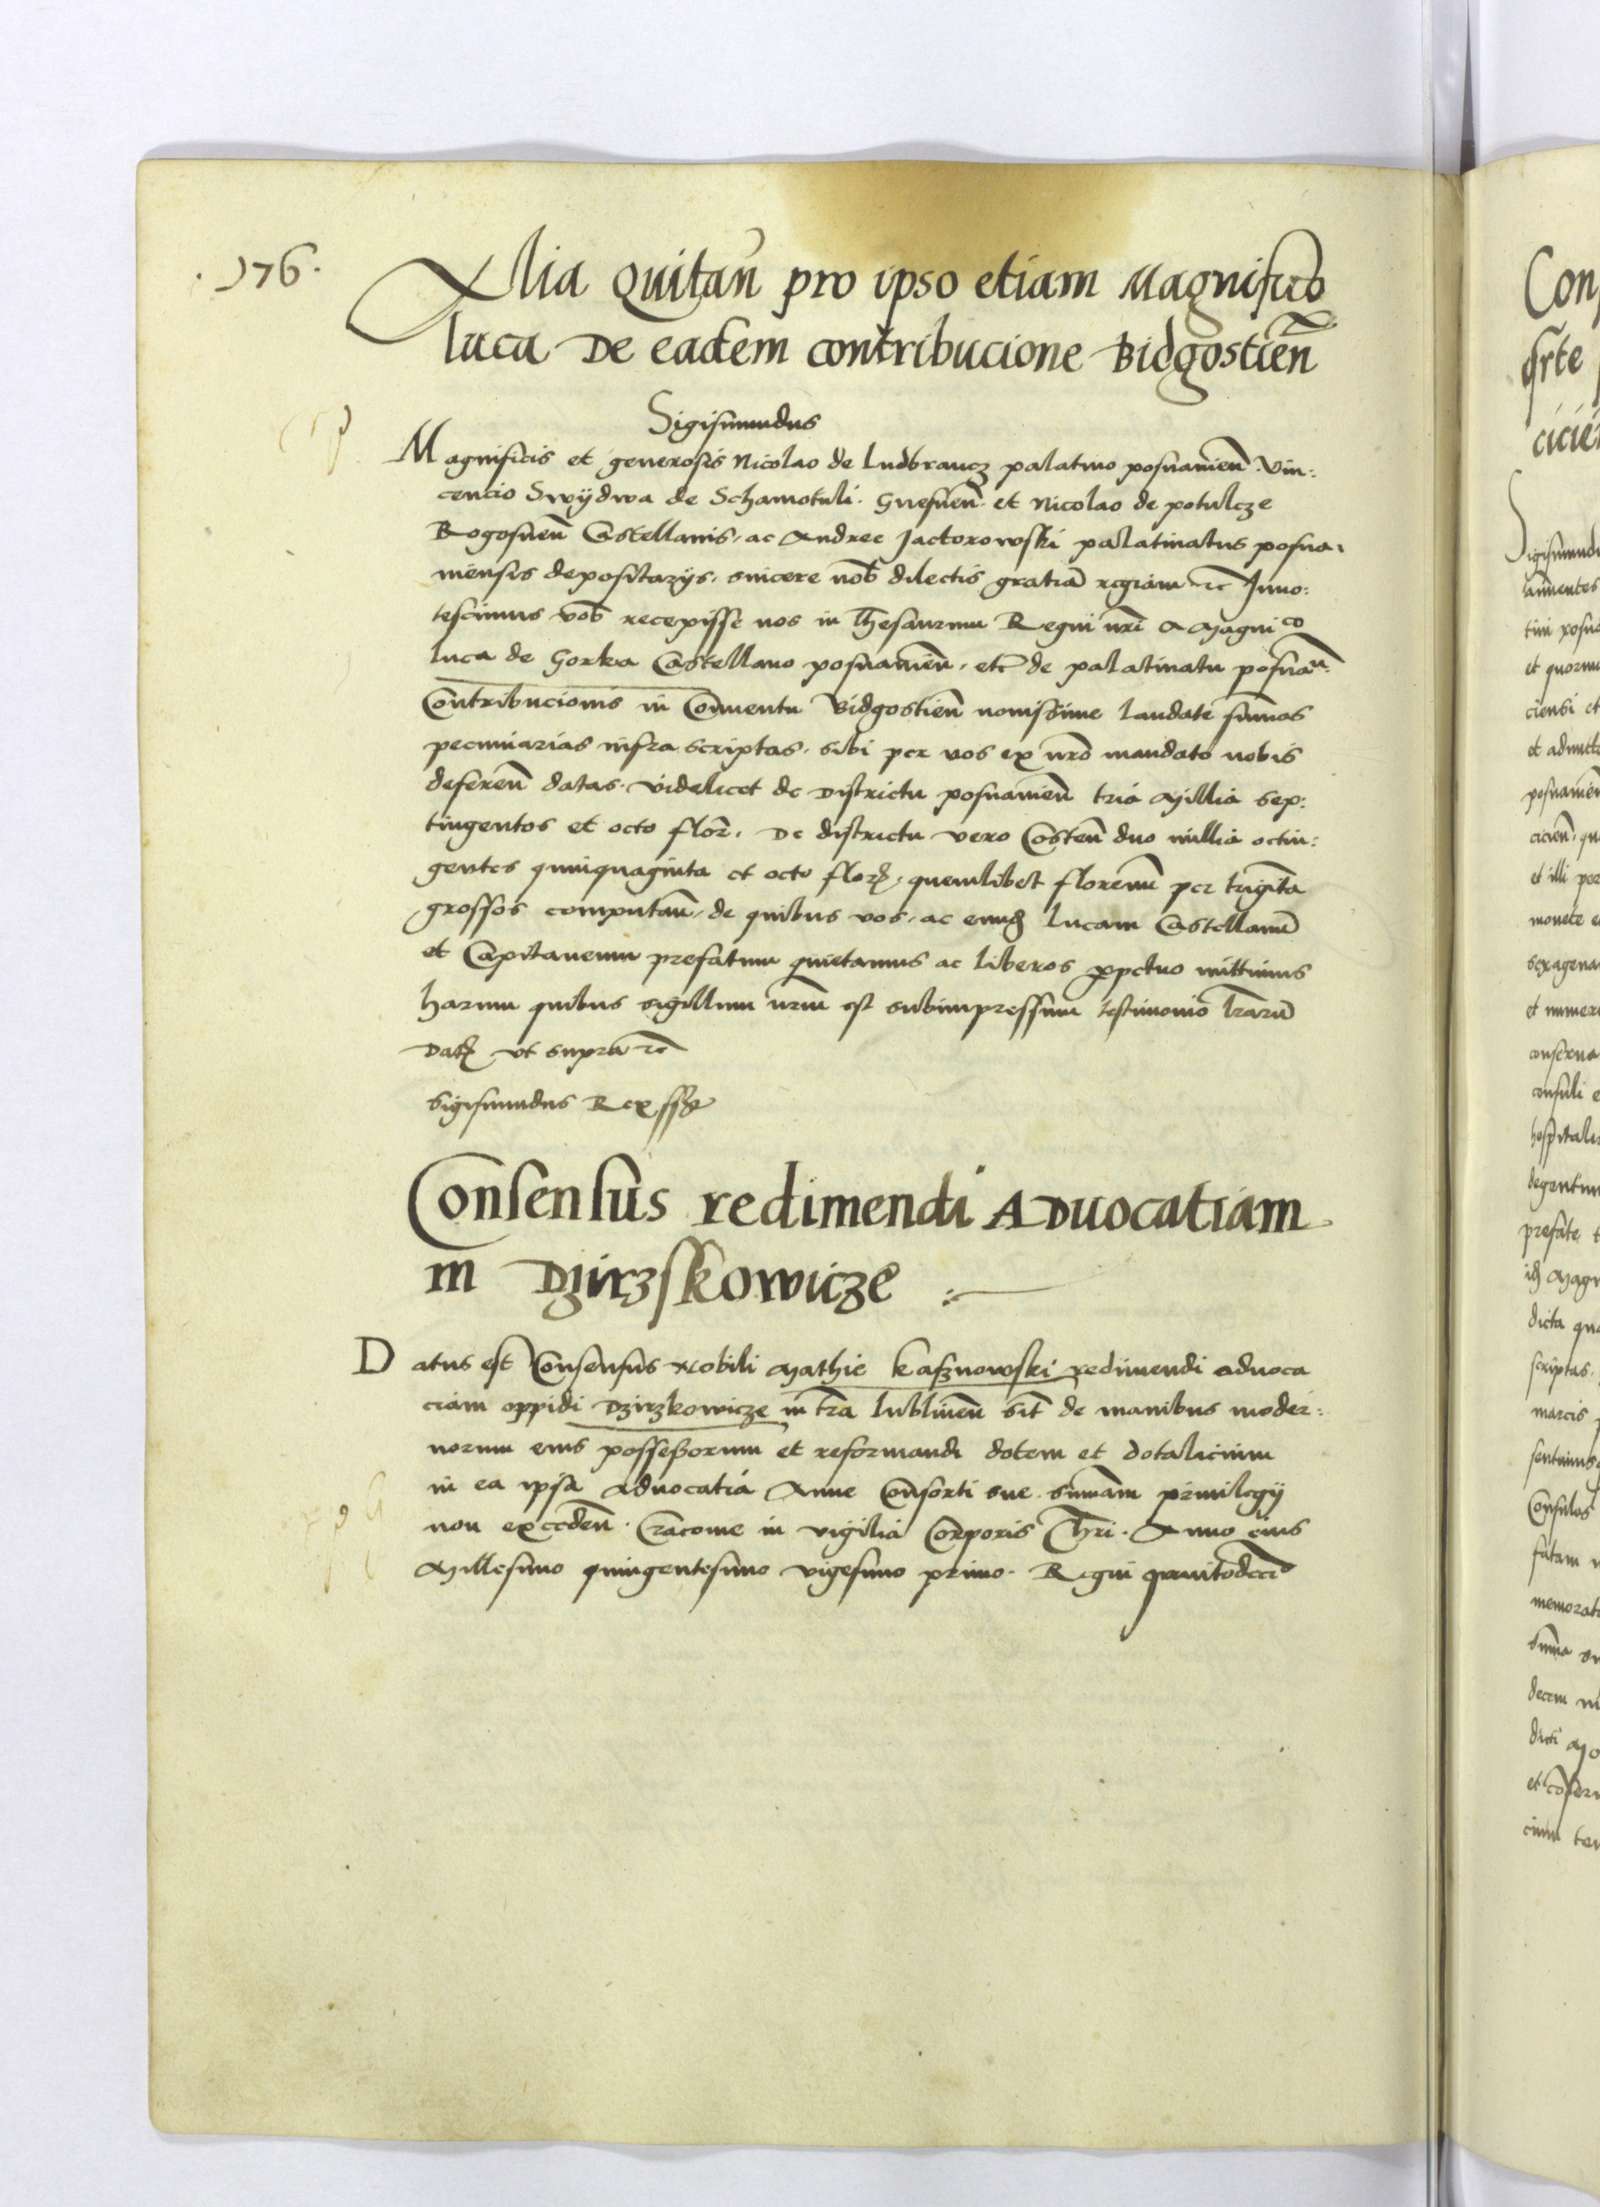 .176.
Alia Quitan̄ pro ipso etiam Magnifico
luca De eadem contribucione Bidgostien̄
Sigismundus
Magnificis et generosis Nicolao de Ludbrancz palatino posnanien̄. Vin:
cencio Swÿdwa de Schamotuli. Gnesnen̄. et Nicolao de potulcze
Rogosnen̄ Castellanis, ac Andree Jactorowski palatinatus posna,
niensis depositarÿs, sincere nob̄ dilectis gratiā regiam ꝛc Inno:
tescimus vob̄ recepisse nos in Thesaurum Regni nr̄i a Magnico
luca de Gorka Castellano posnanien̄, etc̄ de palatinatu posnan̄.
Contribucionis in Conuentu Bidgostien̄ nouissime laudate sum̄as
pecuniarias infra scriptas, sibi per vos ex nr̄o mandato nobis
deferen̄ datas. videlicet de Districtu posnanien̄ tria Millia sep:
tingentos et octo flor̄. De districtu vero Costen̄ duo millia octin:
gentos quinquaginta et octo florꝝ, quemlibet florenū per triginta
grossos computan̄, de quibus vos, ac eundē Lucam Castellanū
et Capitaneum prefatum quietamus ac liberos ꝑpetuo mittimus
harum quibus sigillum nr̄um est subimpressum testimonio lr̄arū
Datꝭ vt supra ꝛc
Sigismundus Rex ssꝭ
Consensus redimendi ADuocatiam
in Dzirzskowicze
Datus est Consensus Nobili Mathie Kasznowski redimendi aduoca
ciam oppidi Dzirzkowicze in tr̄a lublinen̄ sit̄ de manibus moder:
norum eius possessorum et reformandi dotem et dotalicium
in ea ipsa aduocatia Anne Consorti sue summam priuilegÿ
non exceden̄. Cracouie in vigilia Corporis Chr̄i. Anno eius
Millesimo quingentesimo vigesimo primo. Regni quintodeci᷒